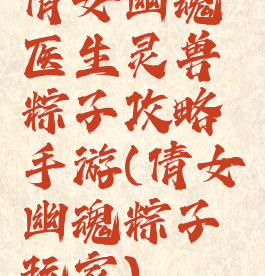 倩女幽魂
医生灵兽
粽子攻略
手游(倩女
幽魂粽子
玩家)